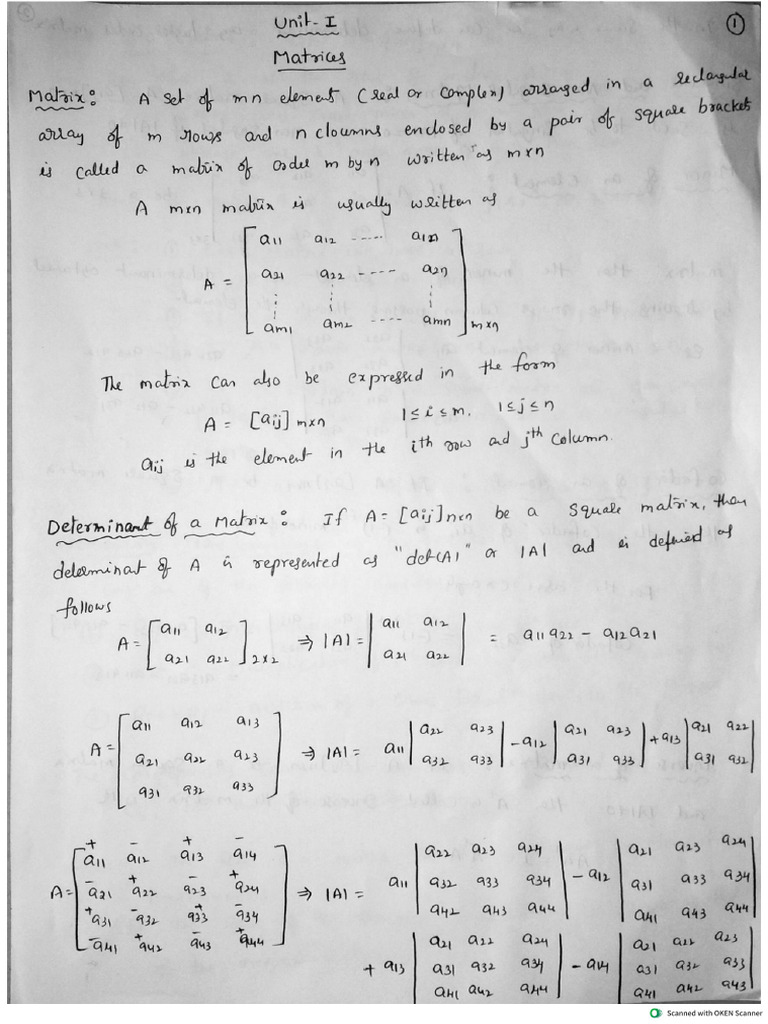 Unit-I
①
Matrices
Matrix: A set of mn element (real or complex) arranged in a rectangular
array of m rows and n cloumns enclosed by a pair of square bracket
is called a matrix of order m by n written as m×n
A m×n matrix is usually written as
A = [ a11 a12 ----- a1n
a21 a22 ---- a2n
⋮ ⋮ ⋮
am1 am2 ---- amn ] m×n
The matrix can also be expressed in the form
A = [aij] m×n 1≤i≤m, 1≤j≤n
aij is the element in the ith row and jth column.
Determinant of a Matrix: If A = [aij] n×n be a square matrix, then
determinant of A is represented as "det(A)" or |A| and is defined as
follows
A = [ a11 a12
a21 a22 ] 2×2 ⇒ |A| = | a11 a12
a21 a22 | = a11a22 - a12a21
A = [ a11 a12 a13
a21 a22 a23
a31 a32 a33 ] ⇒ |A| = a11 | a22 a23
a32 a33 | - a12 | a21 a23
a31 a33 | + a13 | a21 a22
a31 a32 |
A = [ +a11 -a12 +a13 -a14
-a21 +a22 -a23 +a24
+a31 -a32 +a33 -a34
-a41 +a42 -a43 +a44 ] ⇒ |A| = a11 | a22 a23 a24
a32 a33 a34
a42 a43 a44 | - a12 | a21 a23 a24
a31 a33 a34
a41 a43 a44 |
+ a13 | a21 a22 a24
a31 a32 a34
a41 a42 a44 | - a14 | a21 a22 a23
a31 a32 a33
a41 a42 a43 |
Scanned with OKEN Scanner